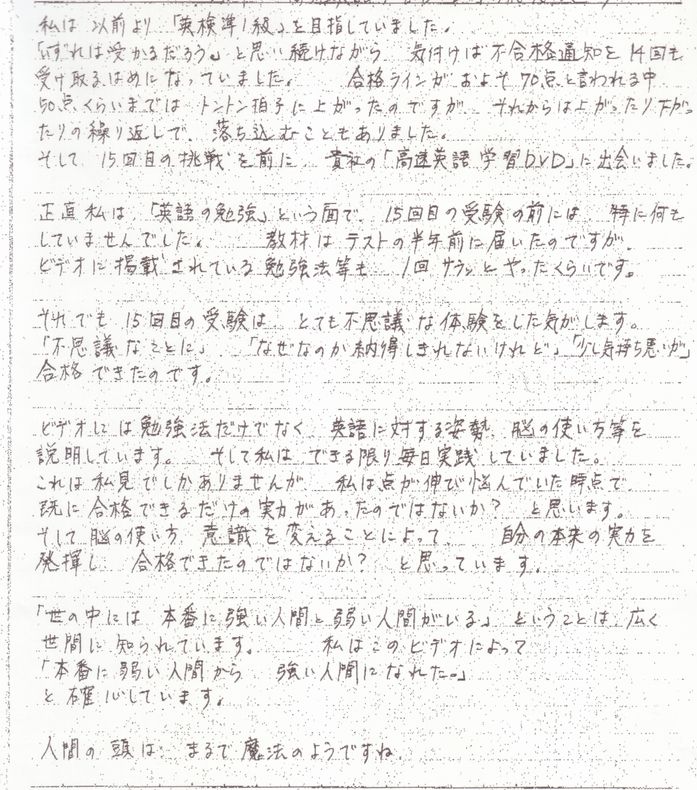 私は以前より「英検準1級」を目指していました。
「いずれは受かるだろう」と思い続けながら 気付けば不合格通知を14回も
受け取るはめになっていました。 合格ラインがおよそ70点と言われる中
50点くらいまではトントン拍子に上がったのですが、それからは上がったり下がっ
たりの繰り返しで、落ち込むこともありました。
そして15回目の挑戦を前に、貴社の「高速英語学習DVD」に出会いました。
正直私は、「英語の勉強」という面で、15回目の受験の前には、特に何も
していませんでした。 教材はテストの半年前に届いたのですが、
ビデオに掲載されている勉強法等も、1回サラッとやったくらいです。
それでも15回目の受験は、とても不思議な体験をした気がします。
「不思議なことに」「なぜなのか納得しきれないけれど」「少し気持ち悪いが」
合格できたのです。
ビデオには勉強法だけでなく、英語に対する姿勢、脳の使い方等を
説明しています。 そして私はできる限り毎日実践していました。
これは私見でしかありませんが、私は点が伸び悩んでいた時点で、
既に合格できるだけの実力があったのではないか? と思います。
そして脳の使い方、意識を変えることによって、 自分の本来の実力を
発揮し、合格できたのではないか? と思っています。
「世の中には本番に強い人間と弱い人間がいる」ということは、広く
世間に知られています。 私はこのビデオによって
「本番に弱い人間から 強い人間になれた。」
と確心しています。
人間の頭は、まるで魔法のようですね。